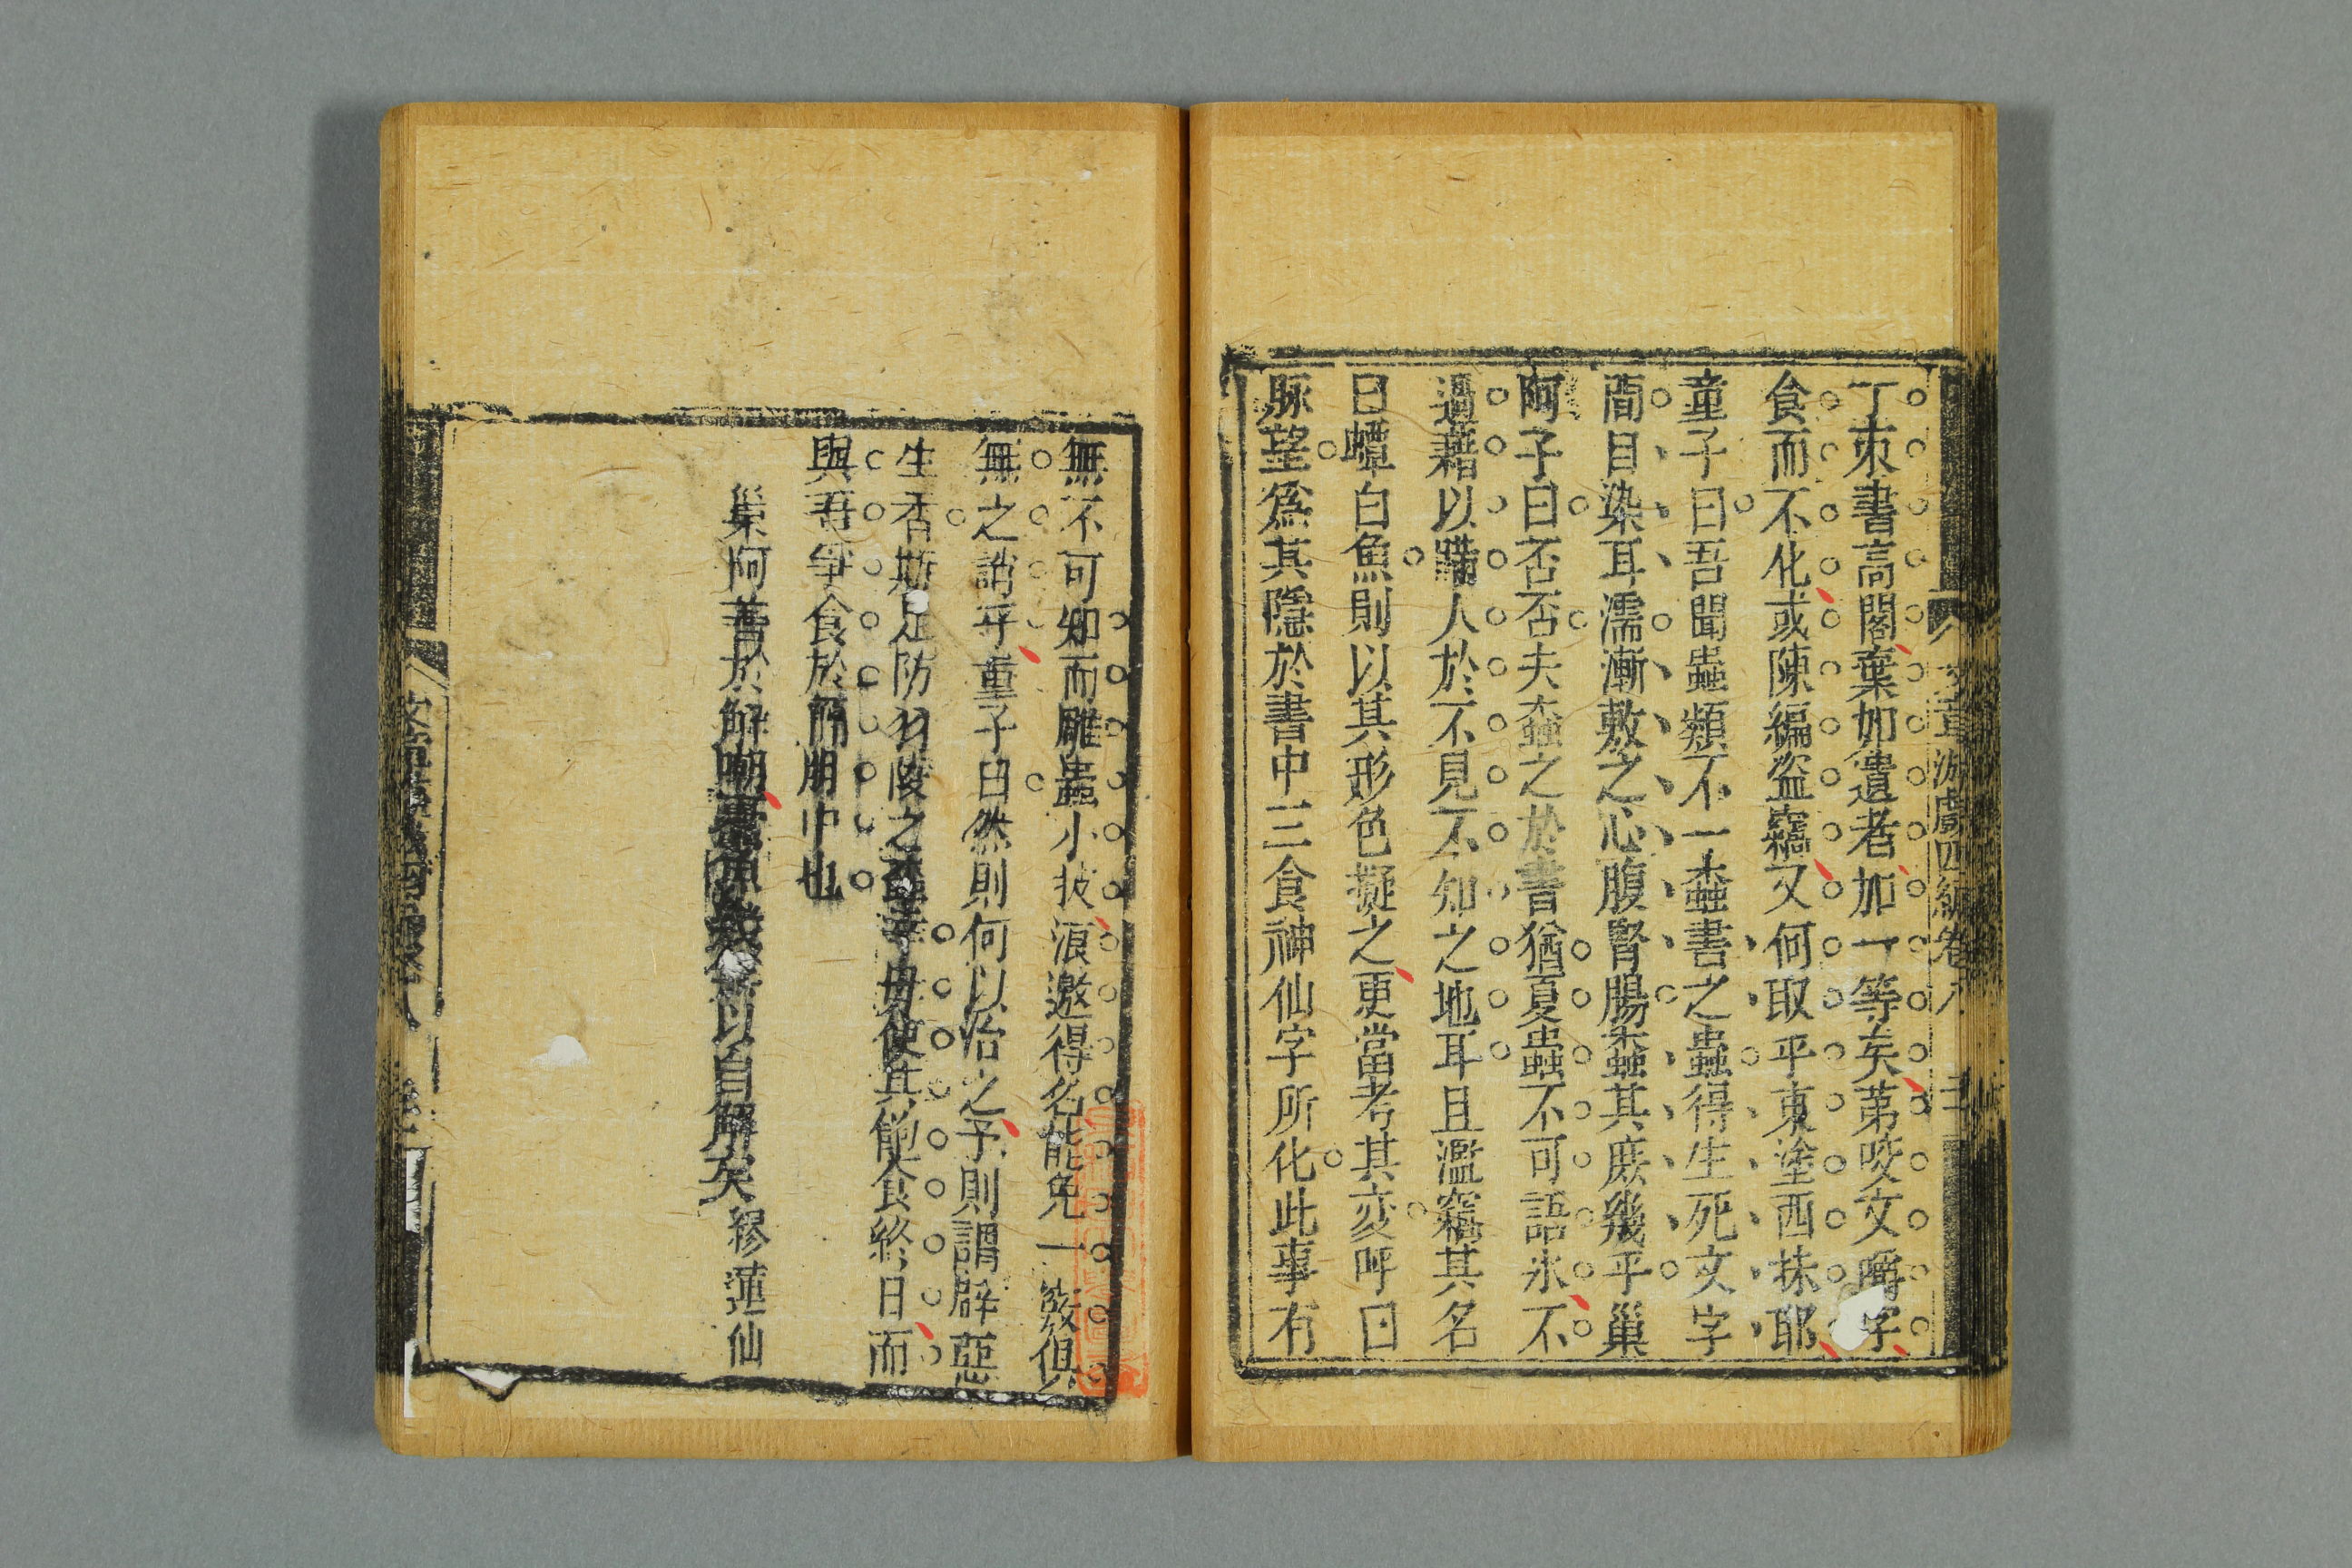 丁束書高閣葉如遺者加一等矣第咬文嚼字
食而不化或陳編盜竊又何取乎東塗西抹耶
童子曰吾聞蟲類不一蠹書之蟲得生死文字
間目染耳濡漸敷之心腹腎腸蠹其庶幾乎巢
阿子曰否否夫蠹之於書猶夏蟲不可語氷不
過藉以購人於不見不知之地耳且濫竊其名
曰蟫白魚則以其形色擬之更當考其変呼曰
脉望爲其隱於書中三食神仙字所化此事有
文章游戲四編卷八
無不可知而雕蟲小技浪邀得名能免一篏俱
無之誚乎童子曰然則何以治之予則謂辟惡
生香斯足防于陵之蠹毋使其飽食終日而
與吾爭食於中也
巢阿善於解嘲以自解矣 繆蓮仙